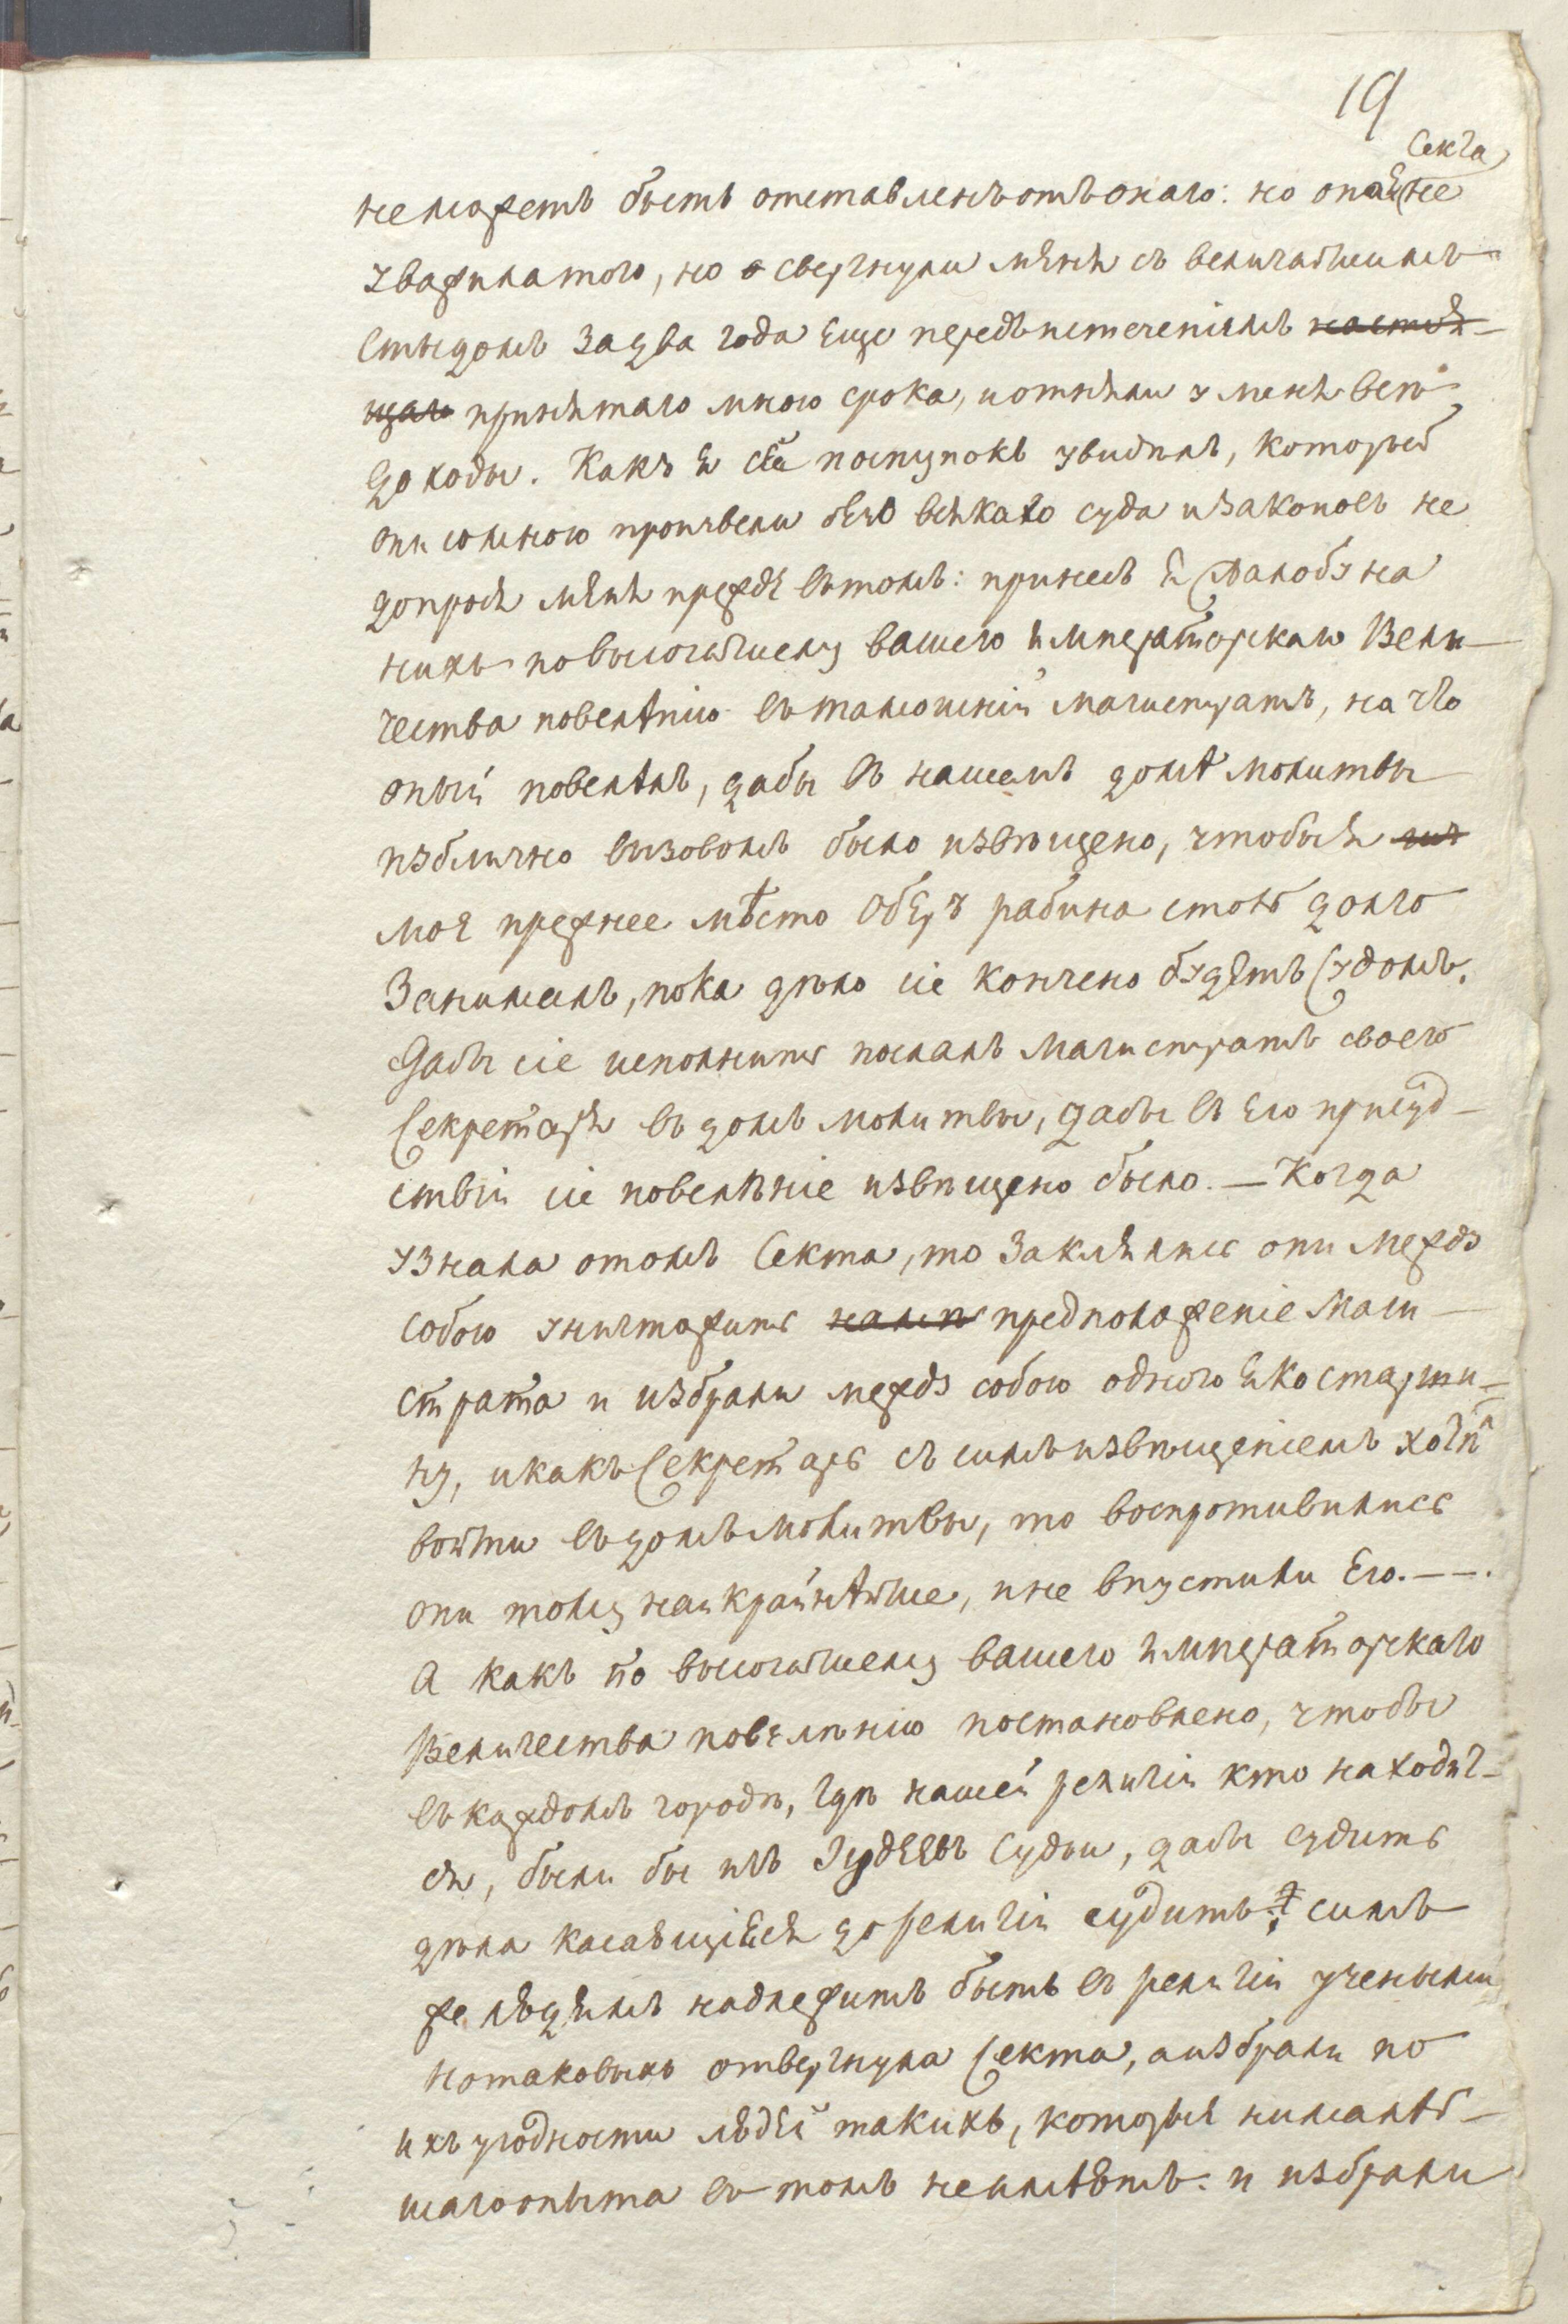 19
Секта
неможетъ быть отставленъ отъ онаго: но оная не
уважила того, но свергнули меня съ величайшимъ
стыдомъ за два года еще передъ истеченіемъ настоя-
щаго принятаго мною срока, и отняли у меня все
доходы. Какъ я сей поступокъ увиделъ, который
они со мною произвели безо всякаго суда и законовъ не
допрося меня прежде въ томъ: принесъ я жалобу на
нихъ по высочайшему вашего императорскаго Вели-
чества повелѣнію въ тамошній магистратъ, на что
оный повелѣлъ, дабы въ нашемъ домѣ молитвы
публично вызовомъ было извещено, чтобы я
мое прежнее мѣсто оберъ рабина столь долго
Занималъ, пока дело сіе кончено будетъ Судомъ.
Дабы сіе исполнить послалъ магистратъ своего
Секретаря въ домъ молитвы, дабы въ его присуд-
ствіи сіе повеленіе извещено было. — Когда
узнала о томъ Секта, то заклялись они между
собою уничтожить предположеніе маги-
страта и избрали между собою одного яко старши-
ну, и какъ Секретарь съ симъ извещеніемъ хотел
войти въ домъ молитвы, то воспротивились
они тому наикрайнѣйше, и не впустили Его. — —.
А какъ по высочайшему вашего императорскаго
Величества повеленію постановлено, чтобы
въ каждомъ городе, где нашей религіи кто находит-
ся, были бы изъ Іудеевъ Судьи, дабы судить
дела касающіеся до религіи судить. симъ
же людямъ надлежитъ быть въ религіи учеными
но таковыхъ отвергнула Секта, а избрали по
ихъ угодности людей такихъ, которыя ни малѣй-
шаго опыта въ томъ неимѣютъ. и избрали